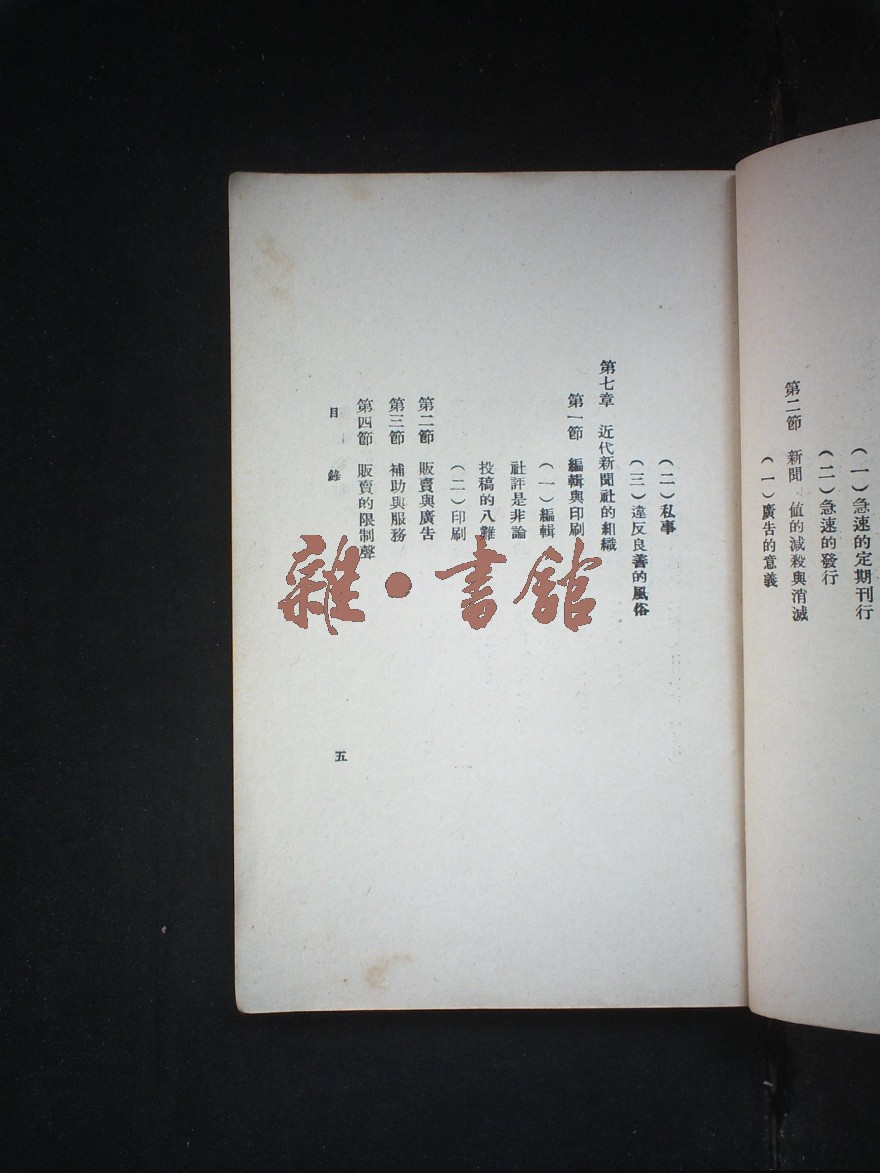 （一）急速的定期刊行
（二）急速的發行
第二節　新聞　値的減殺與消滅
（一）廣告的意義
（二）私事
（三）違反良善的風俗
第七章　近代新聞社的組織
第一節　編輯與印刷
（一）編輯
社評是非論
投稿的八難
（二）印刷
第二節　販賣與廣告
第三節　補助與服務
第四節　販賣的限制聲
目錄　五
雜·書館